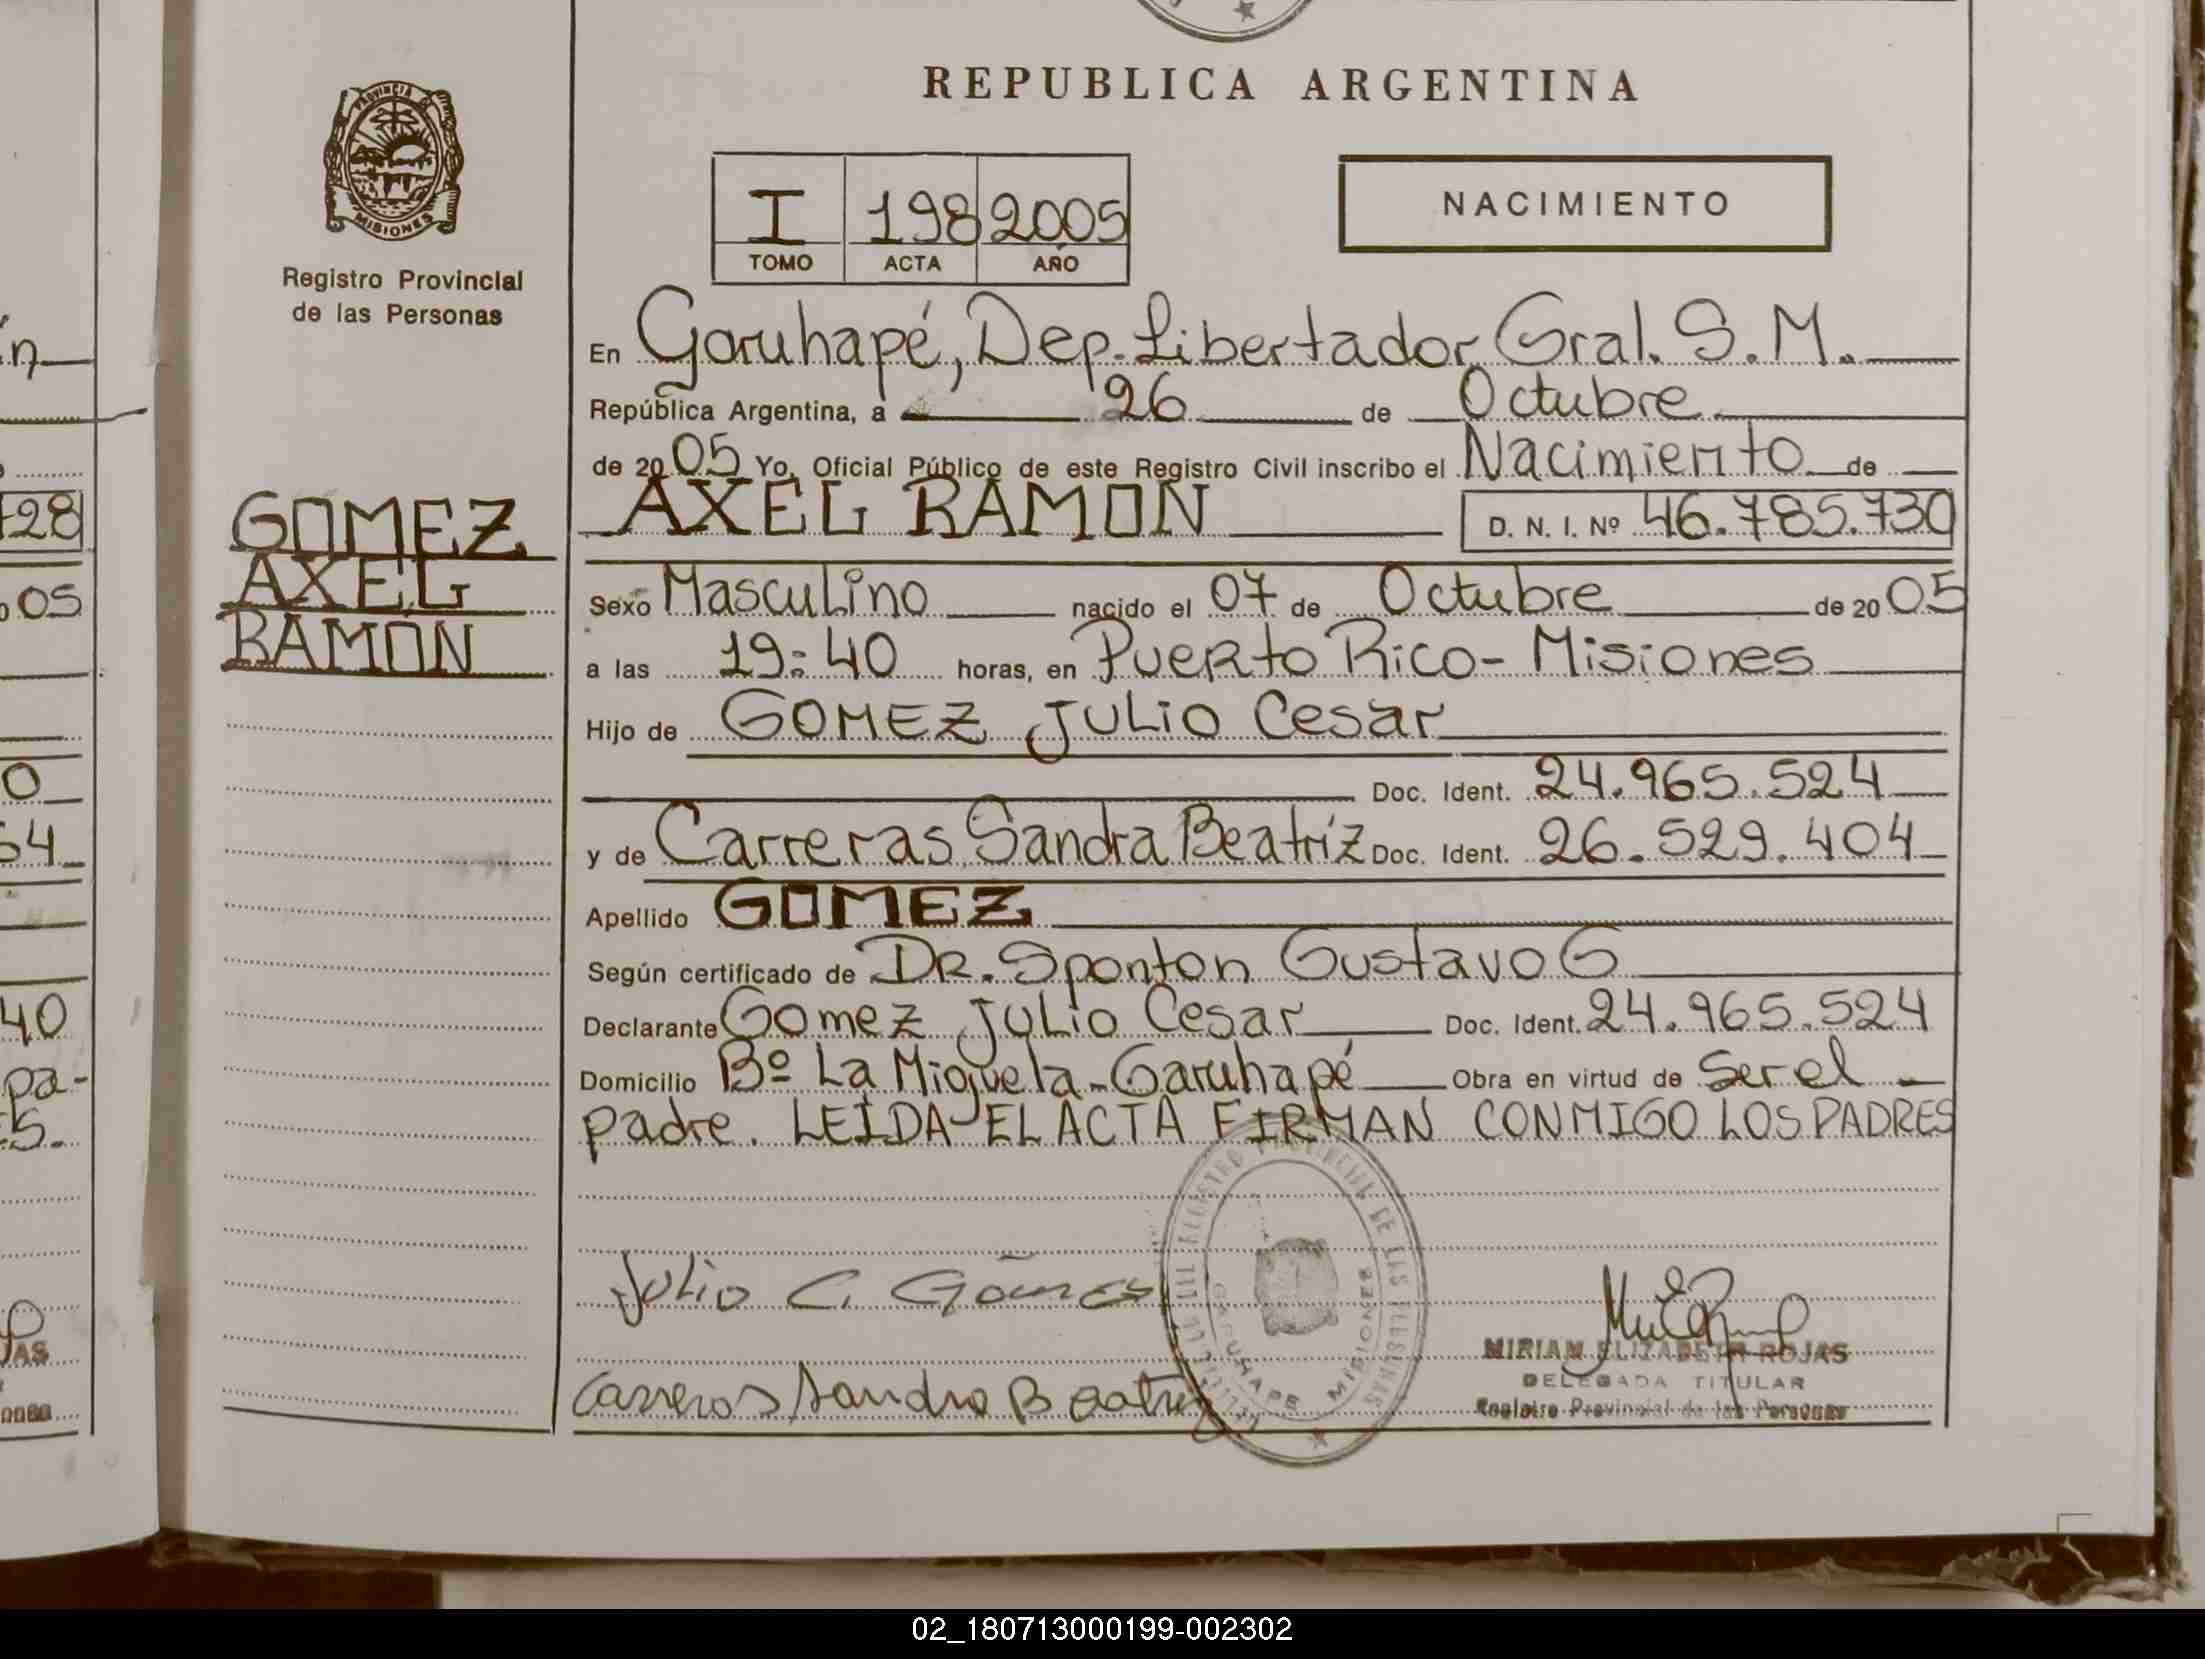 REPUBLICA ARGENTINA
PROVINCIA DE
MISIONES
Registro Provincial
de las Personas
I 198 2005
TOMO ACTA AÑO
NACIMIENTO
En Garuhapé, Dep. Libertador Gral. S. M.
República Argentina, a 26 de Octubre
de 2005 Yo, Oficial Público de este Registro Civil inscribo el Nacimiento de
AXEL RAMON D. N. I. Nº 46.785.730
GOMEZ
AXEL
RAMÓN
Sexo Masculino nacido el 07 de Octubre de 2005
a las 19:40 horas, en Puerto Rico - Misiones
Hijo de GOMEZ JULIO Cesar
Doc. Ident. 24.965.524
y de Carreras Sandra Beatriz Doc. Ident. 26.529.404
Apellido GOMEZ
Según certificado de DR. Sponton Gustavo G
Declarante Gomez Julio Cesar Doc. Ident. 24.965.524
Domicilio Bº La Miguela - Garuhapé Obra en virtud de Ser el
padre. LEIDA EL ACTA FIRMAN CONMIGO LOS PADRES
REGISTRO PROVINCIAL DE LAS PERSONAS
GARUHAPE MISIONES
Julio C. Gómes
Carreras Sandra Beatriz
MIRIAM ELIZABETH ROJAS
DELEGADA TITULAR
Registro Provincial de las Personas
02_180713000199-002302